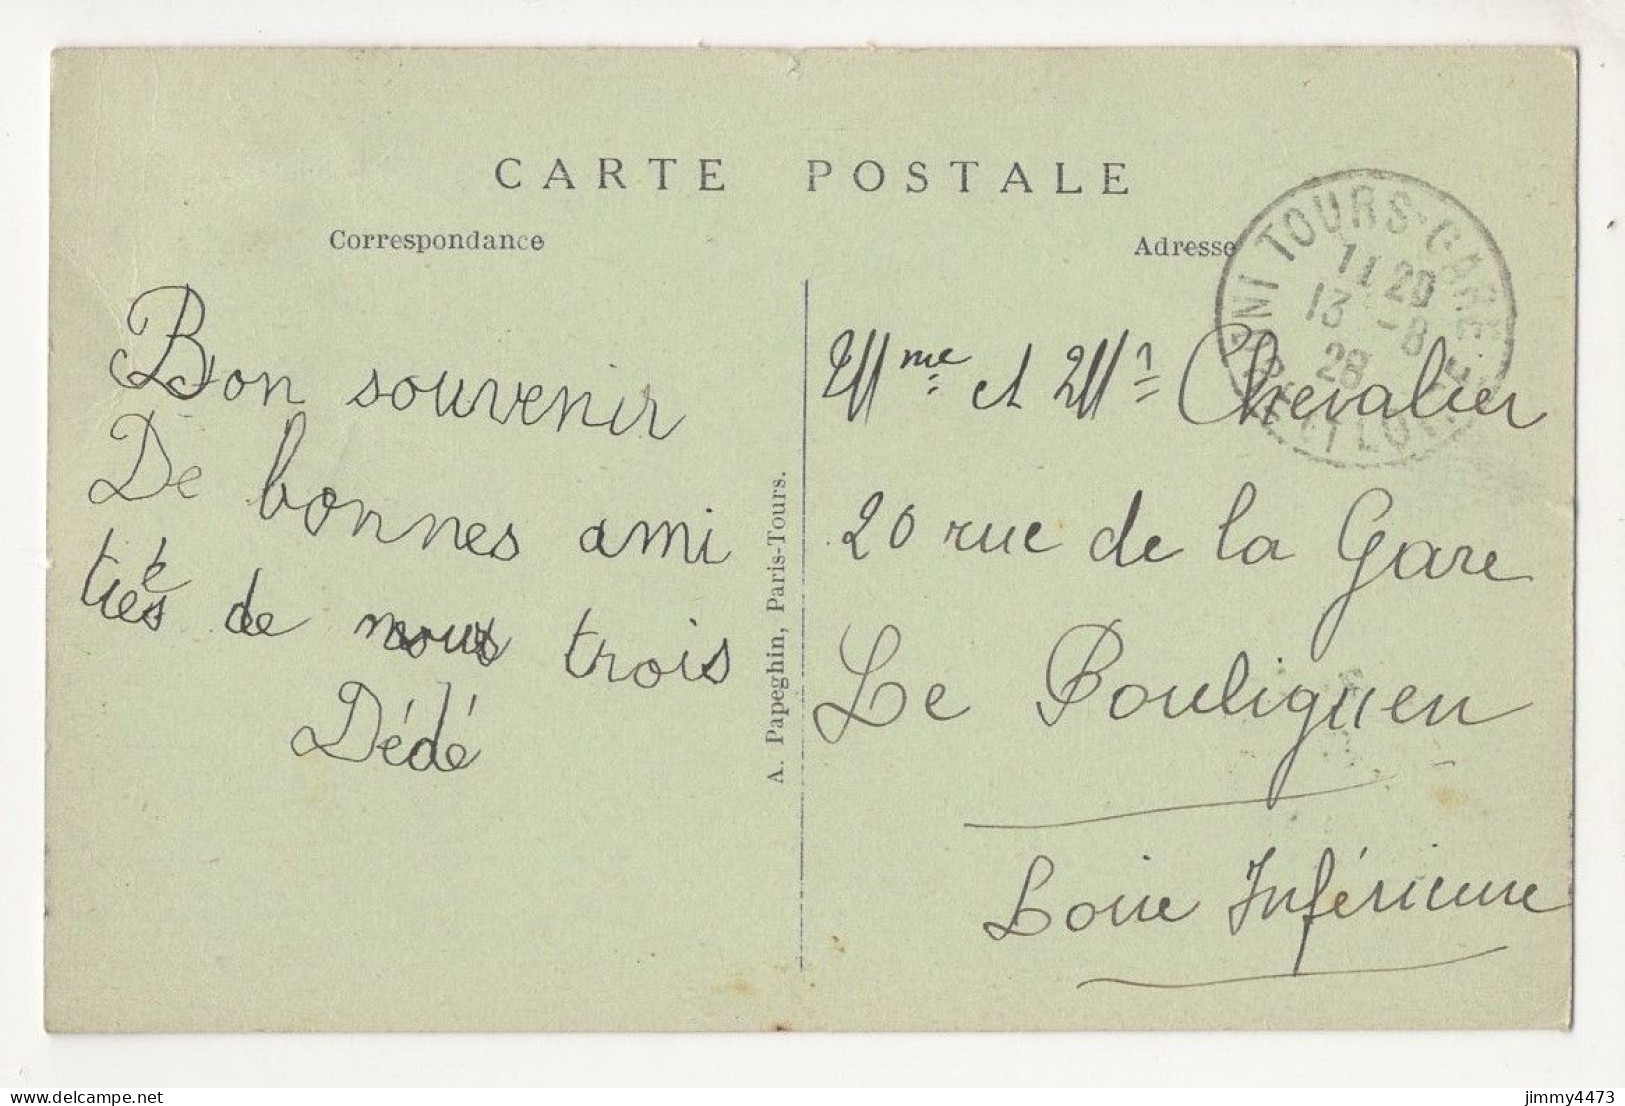 CARTE POSTALE
Correspondance
Adresse
TOURS-GARE
11 20
13 -8
28
Bon souvenir
De bonnes ami
tiés de nous trois
Dédé
A. Papeghin, Paris-Tours.
Mme et Mr Chevalier
20 rue de la Gare
Le Pouliguen
Loire Inférieure
jimmy4473